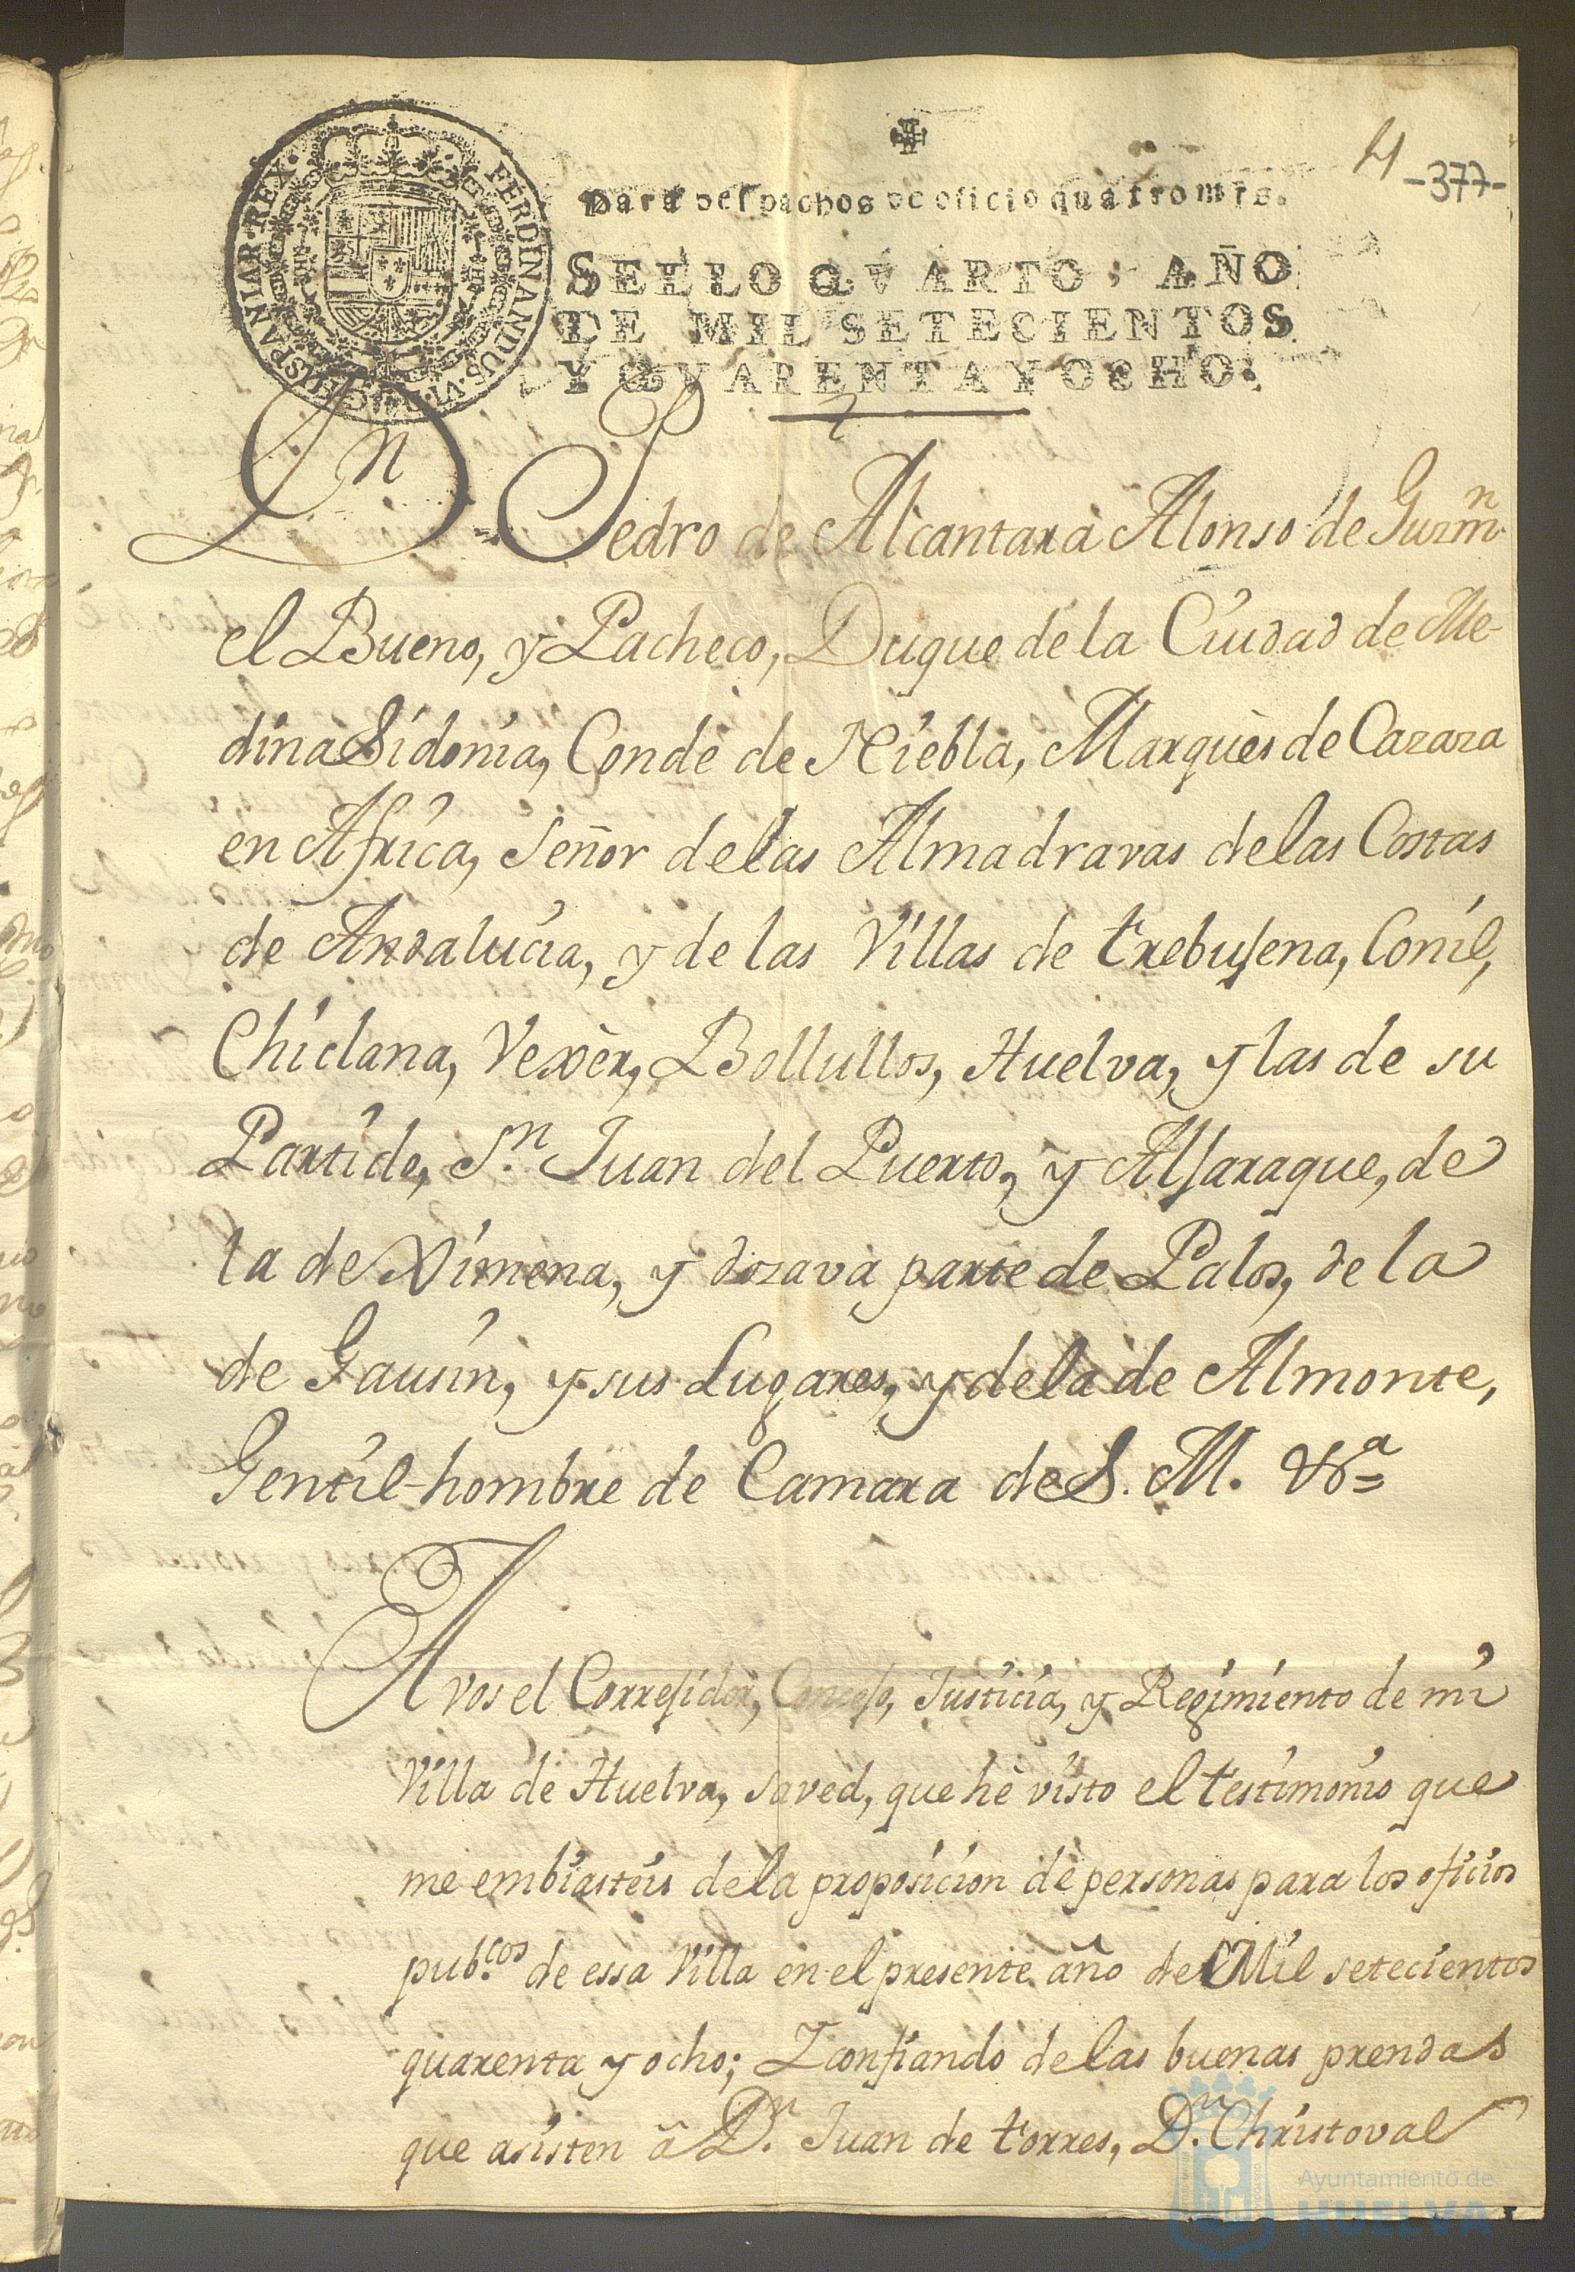 4
-377-
Para despachos de oficio quatro mrs.
SELLO QVARTO, AÑO
DE MIL SETECIENTOS
Y QVARENTA Y OCHO.
FERDINANDUS·VI·D·G·HISPANIAR·REX·
Dn Pedro de Alcantara Alonso de Guzmn
el Bueno, y Pacheco, Duque de la Ciudad de Me-
dina Sidonia, Conde de Niebla, Marquès de Cazaza
en Africa, Señor de las Almadravas de las Costas
de Andalucia, y de las Villas de trebujena, Conil,
Chiclana, Vexèr, Bollullos, Huelva, y las de su
Partido, Sn. Juan del Puerto, y Aljaraque, de
la de Ximena, y dozava parte de Palos, de la
de Gausin, y sus Lugares, y de la de Almonte,
Gentil-hombre de Camara de S. M. &a=
A vos el Correjidor, Concejo, Justicia, y Regimiento de mi
Villa de Huelva, saved, que hè visto el testimonio que
me embiasteis de la proposicion de personas para los oficios
pub.cos de essa Villa en el presente año de Mil setecientos
quarenta y ocho; Y confiando de las buenas prendas
que asisten â Dn. Juan de torres, Dn. Christoval
Ayuntamiento de
HUELVA